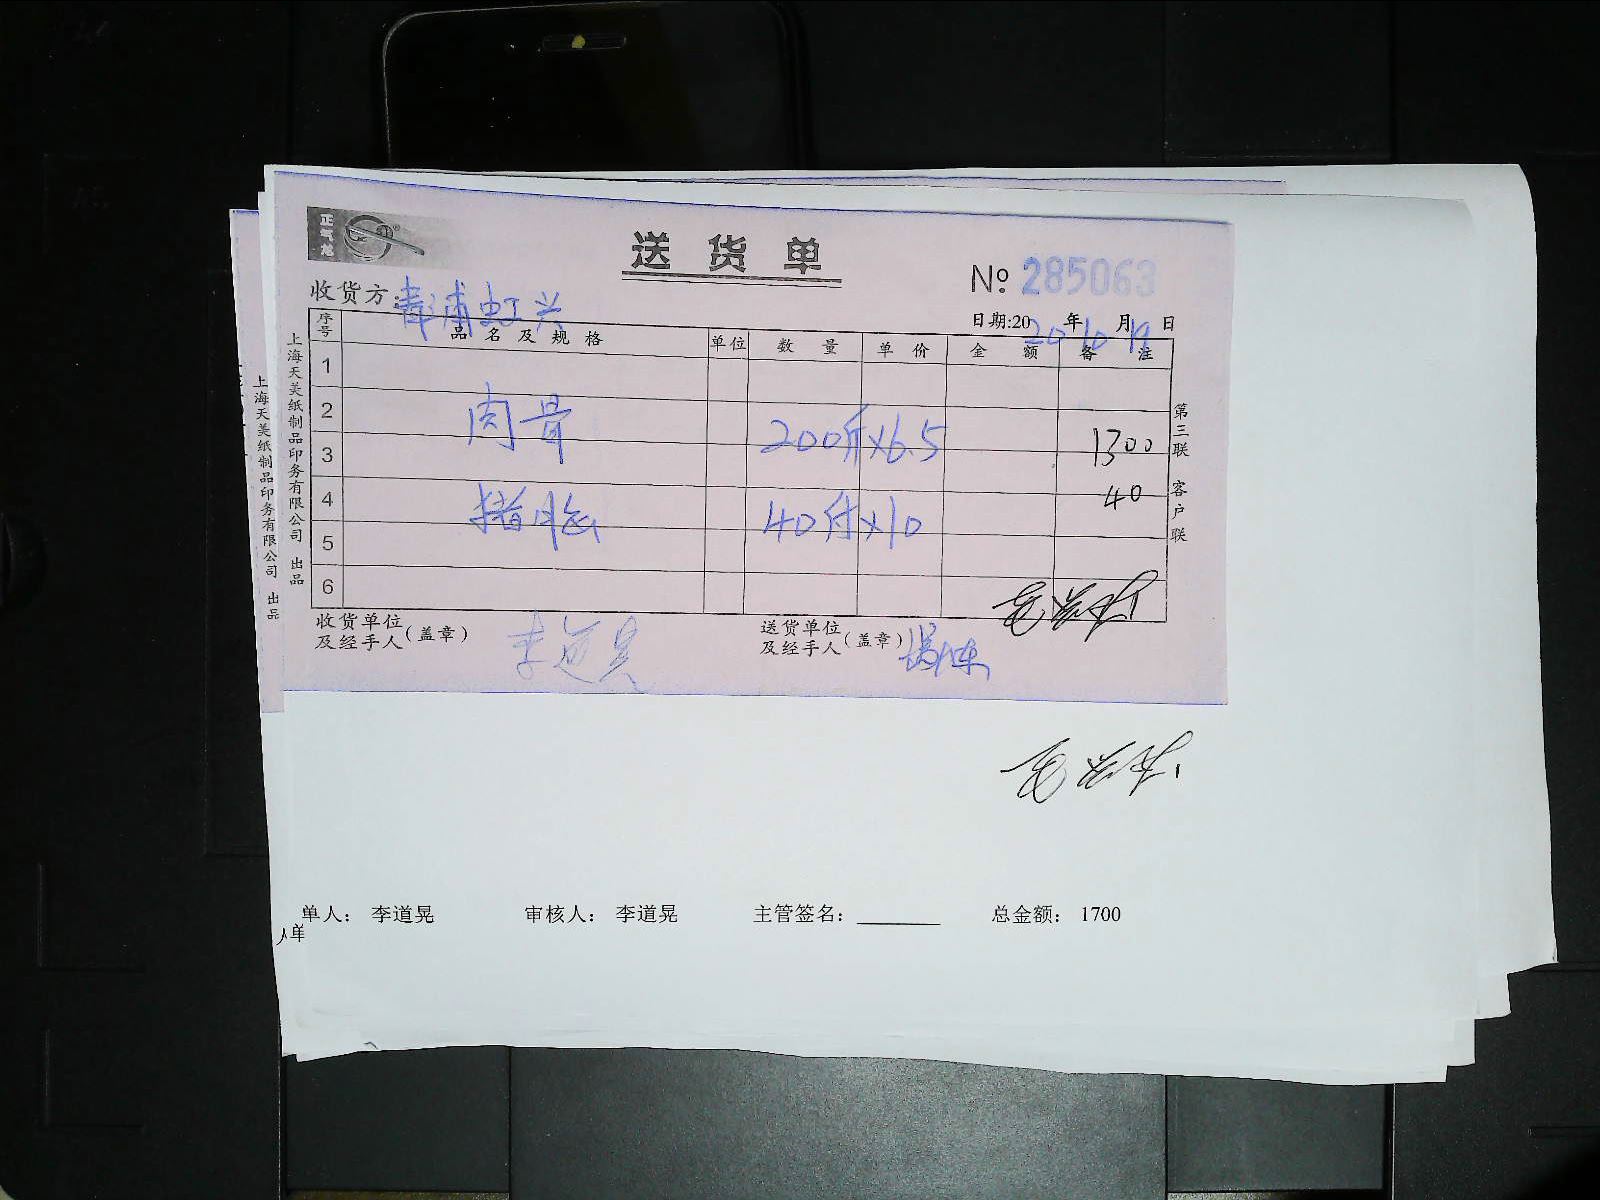 正气龙
送货单
No 285063
收货方: 青浦虹兴
日期:2020年10月19日
序号 品名及规格 单位 数量 单价 金额 备注
1
2 肉骨 200斤×6.5 1300
3
4 猪脑 40付×10 40
5
6
收货单位及经手人(盖章) 李道晃
送货单位及经手人(盖章)
第三联 客户联
上海天美纸制品印务有限公司 出品
上海天美纸制品印务有限公司 出品
单人: 李道晃 审核人: 李道晃 主管签名: 总金额: 1700
单